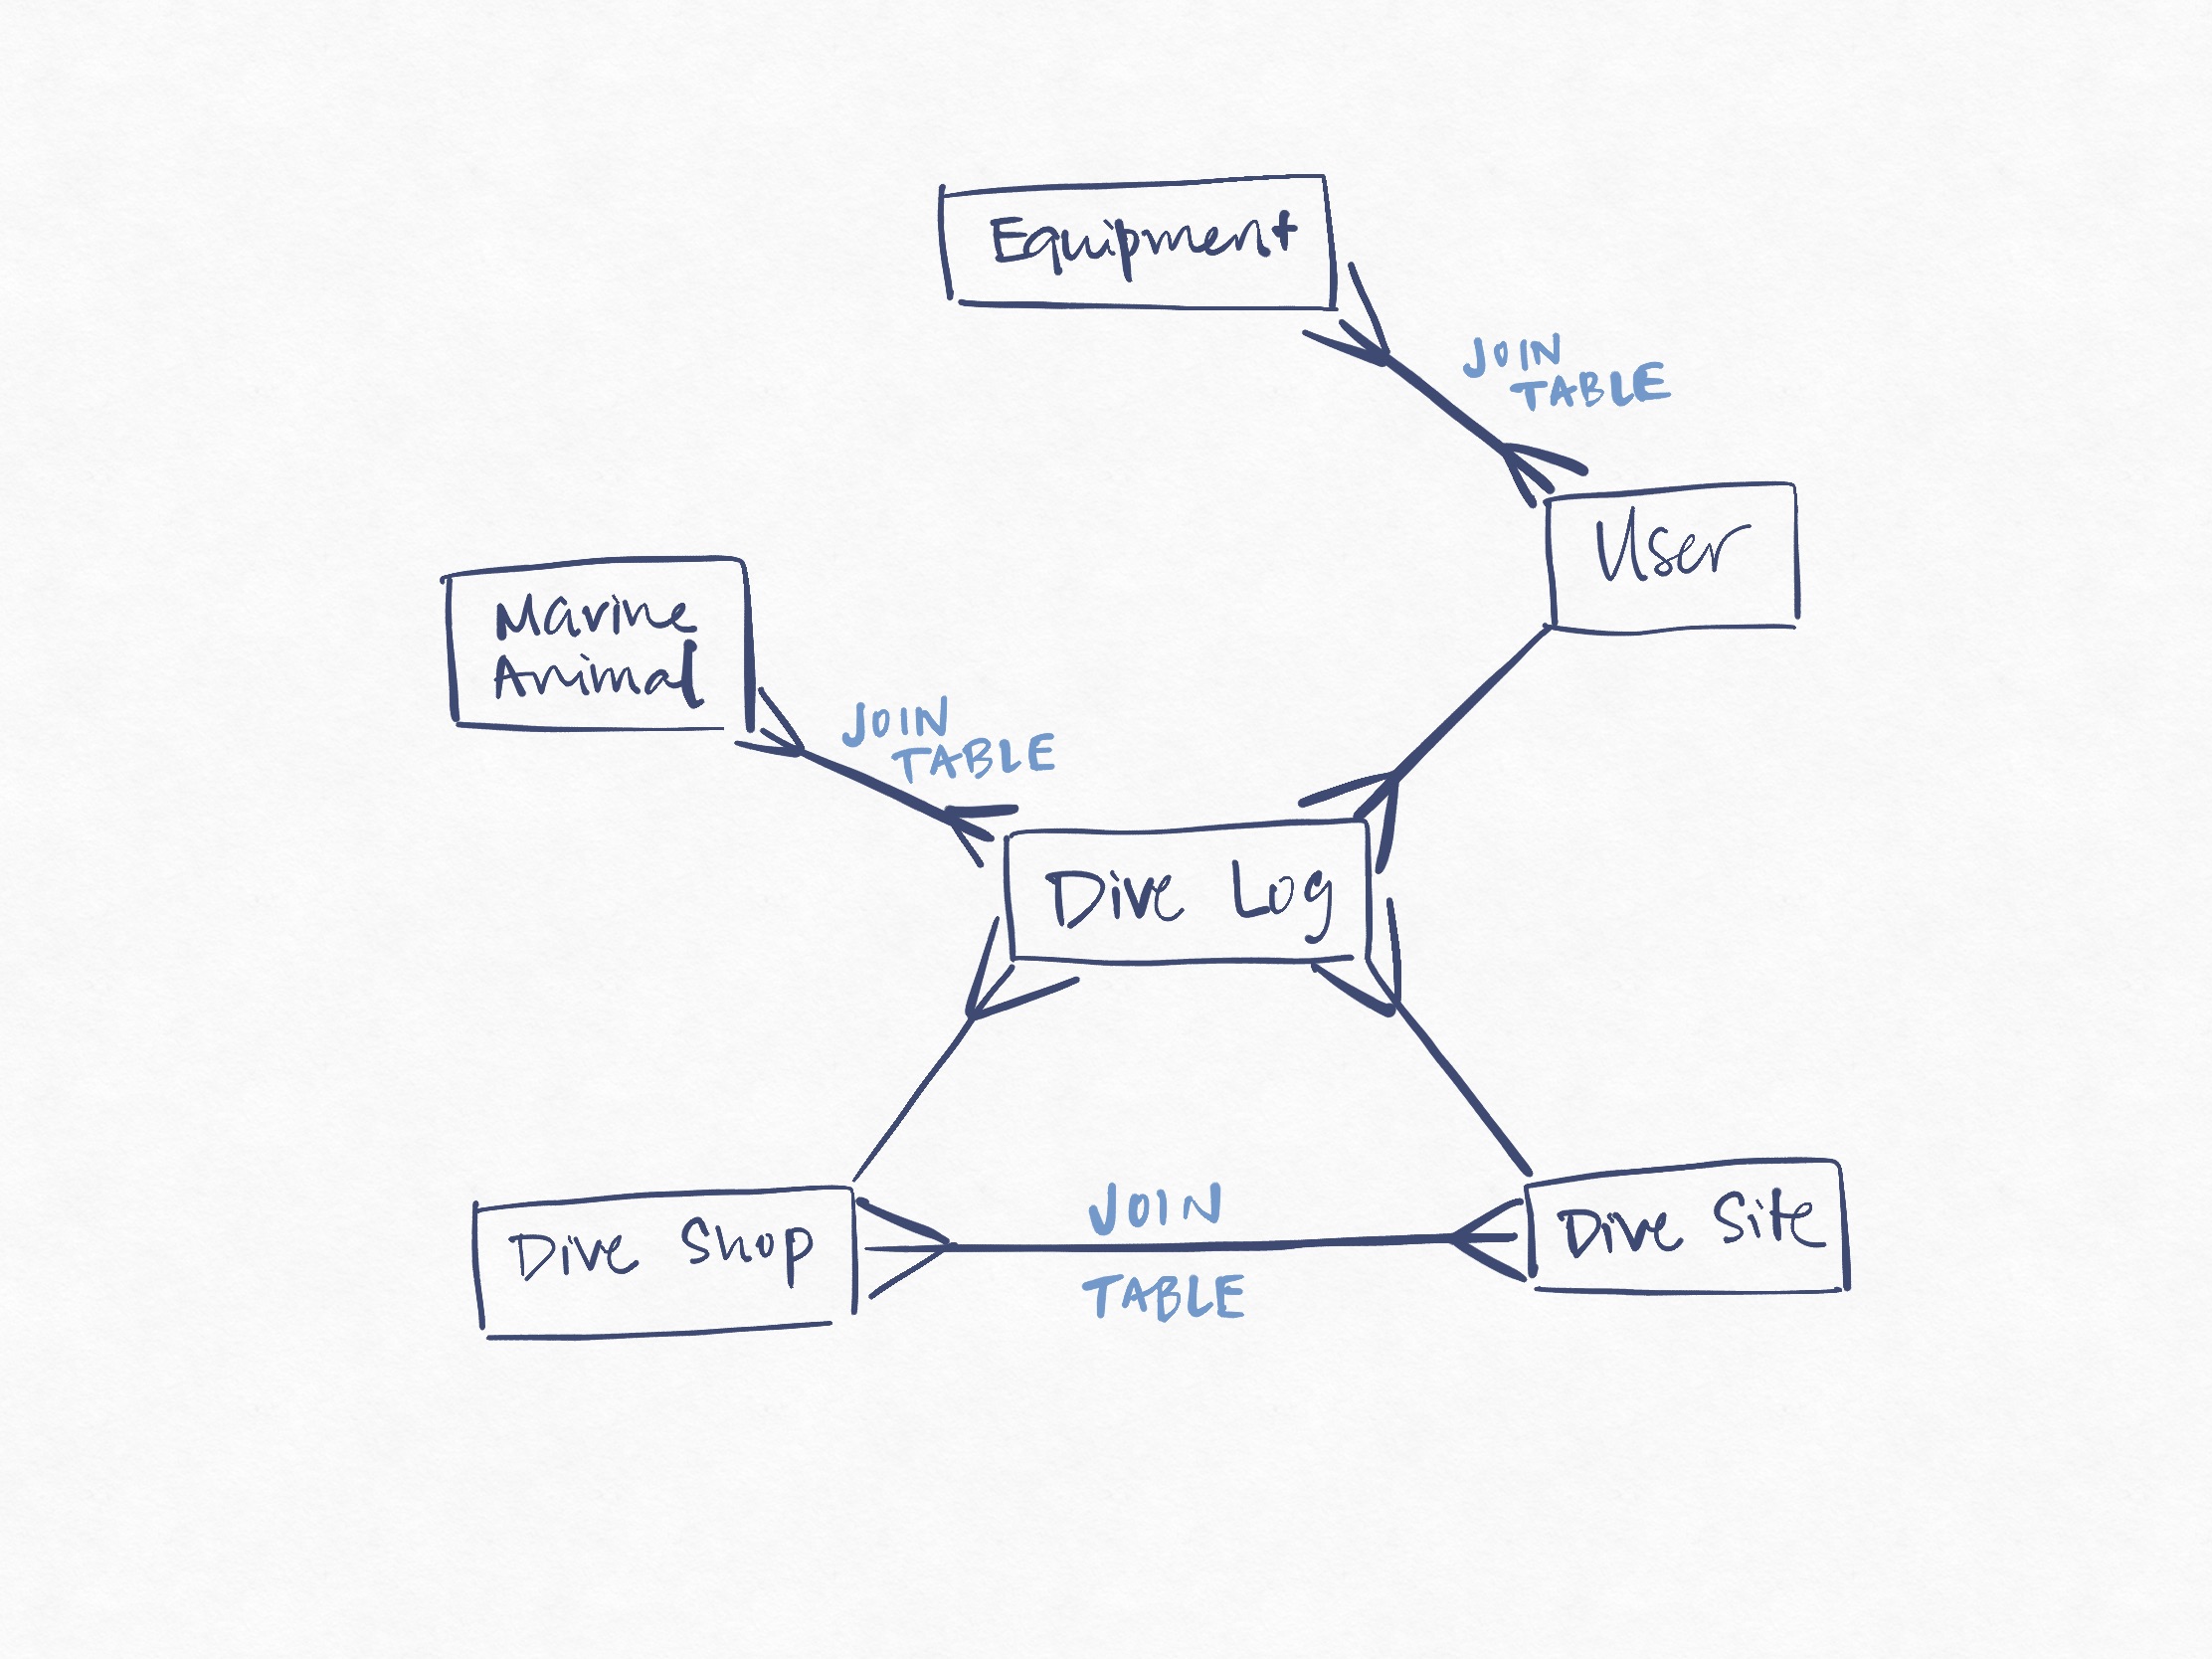 Equipment
JOIN
TABLE
User
Marine
Animal
JOIN
TABLE
Dive Log
Dive Shop
JOIN
TABLE
Dive Site